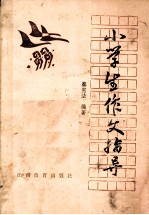 小学生作文指导
编著
教育出版社